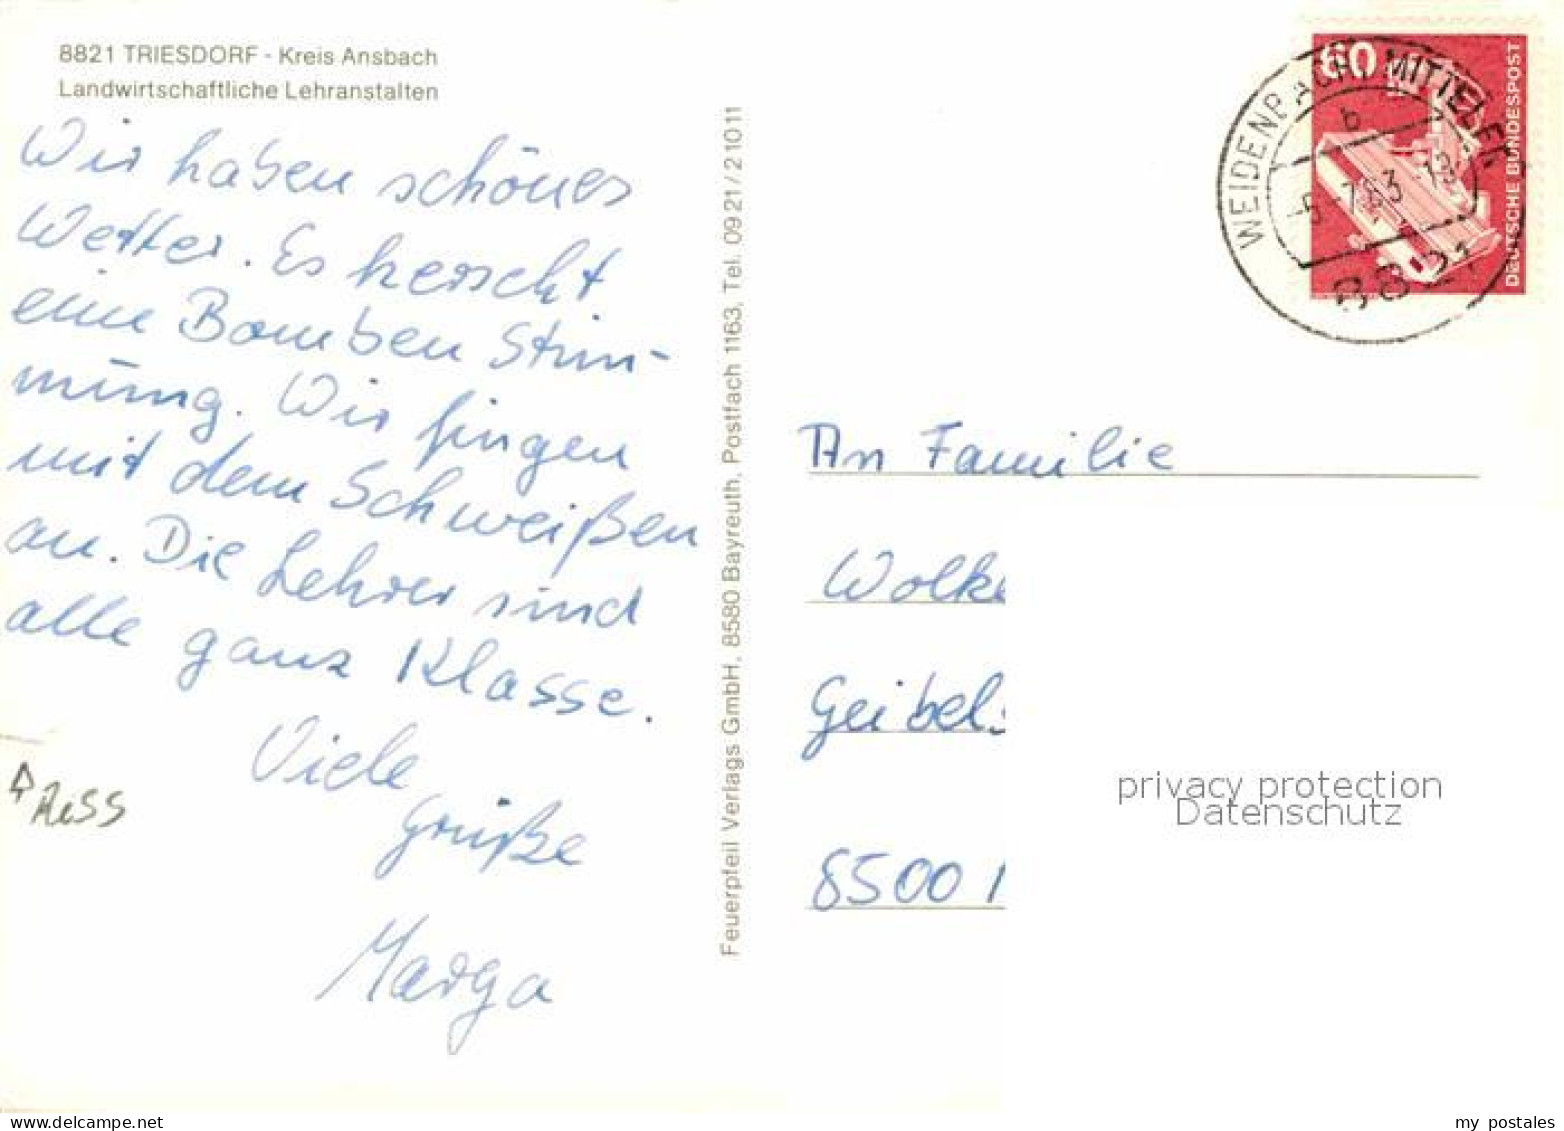 8821 TRIESDORF - Kreis Ansbach
Landwirtschaftliche Lehranstalten
Wir haben schönes
Wetter. Es herscht
eine Bomben Stim-
mung. Wir fingen
mit dem Schweißen
an. Die Lehrer sind
alle ganz Klasse.
Viele
Grüße
Marga
Riss
Feuerpfeil Verlags GmbH, 8580 Bayreuth, Postfach 1163, Tel. 09 21/2 10 11
60
DEUTSCHE BUNDESPOST
WEIDENBACH, MITTELFR
b
-5.-7.83
8821
An Familie
Wolke
Geibels
8500
privacy protection
Datenschutz
my postales